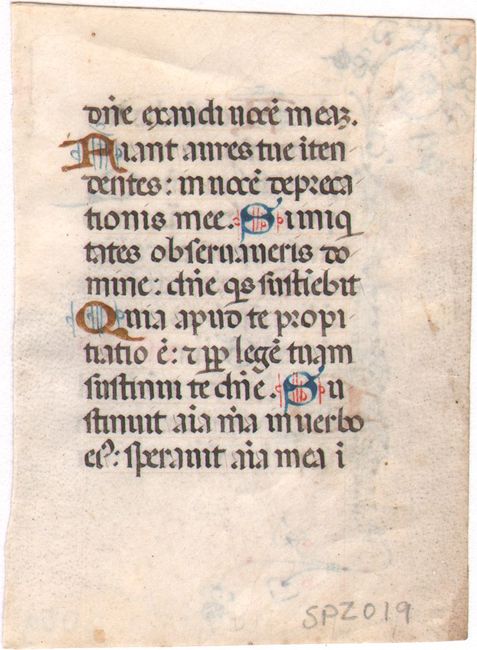 dn̄e exaudi uocē meaꝫ.
Fiant aures tue īten
dentes: in uocē depreca
tionis mee. Si iniq̄
tates obseruaueris do
mine: dn̄e q̄s sustīebit
Quia apud te propi
tiatio ē: ⁊ ꝓp legē tuam
sustinui te dn̄e. Su
stinuit aīa m̄a in uerbo
eiꝰ: sperauit aīa mea ī
SPZ019